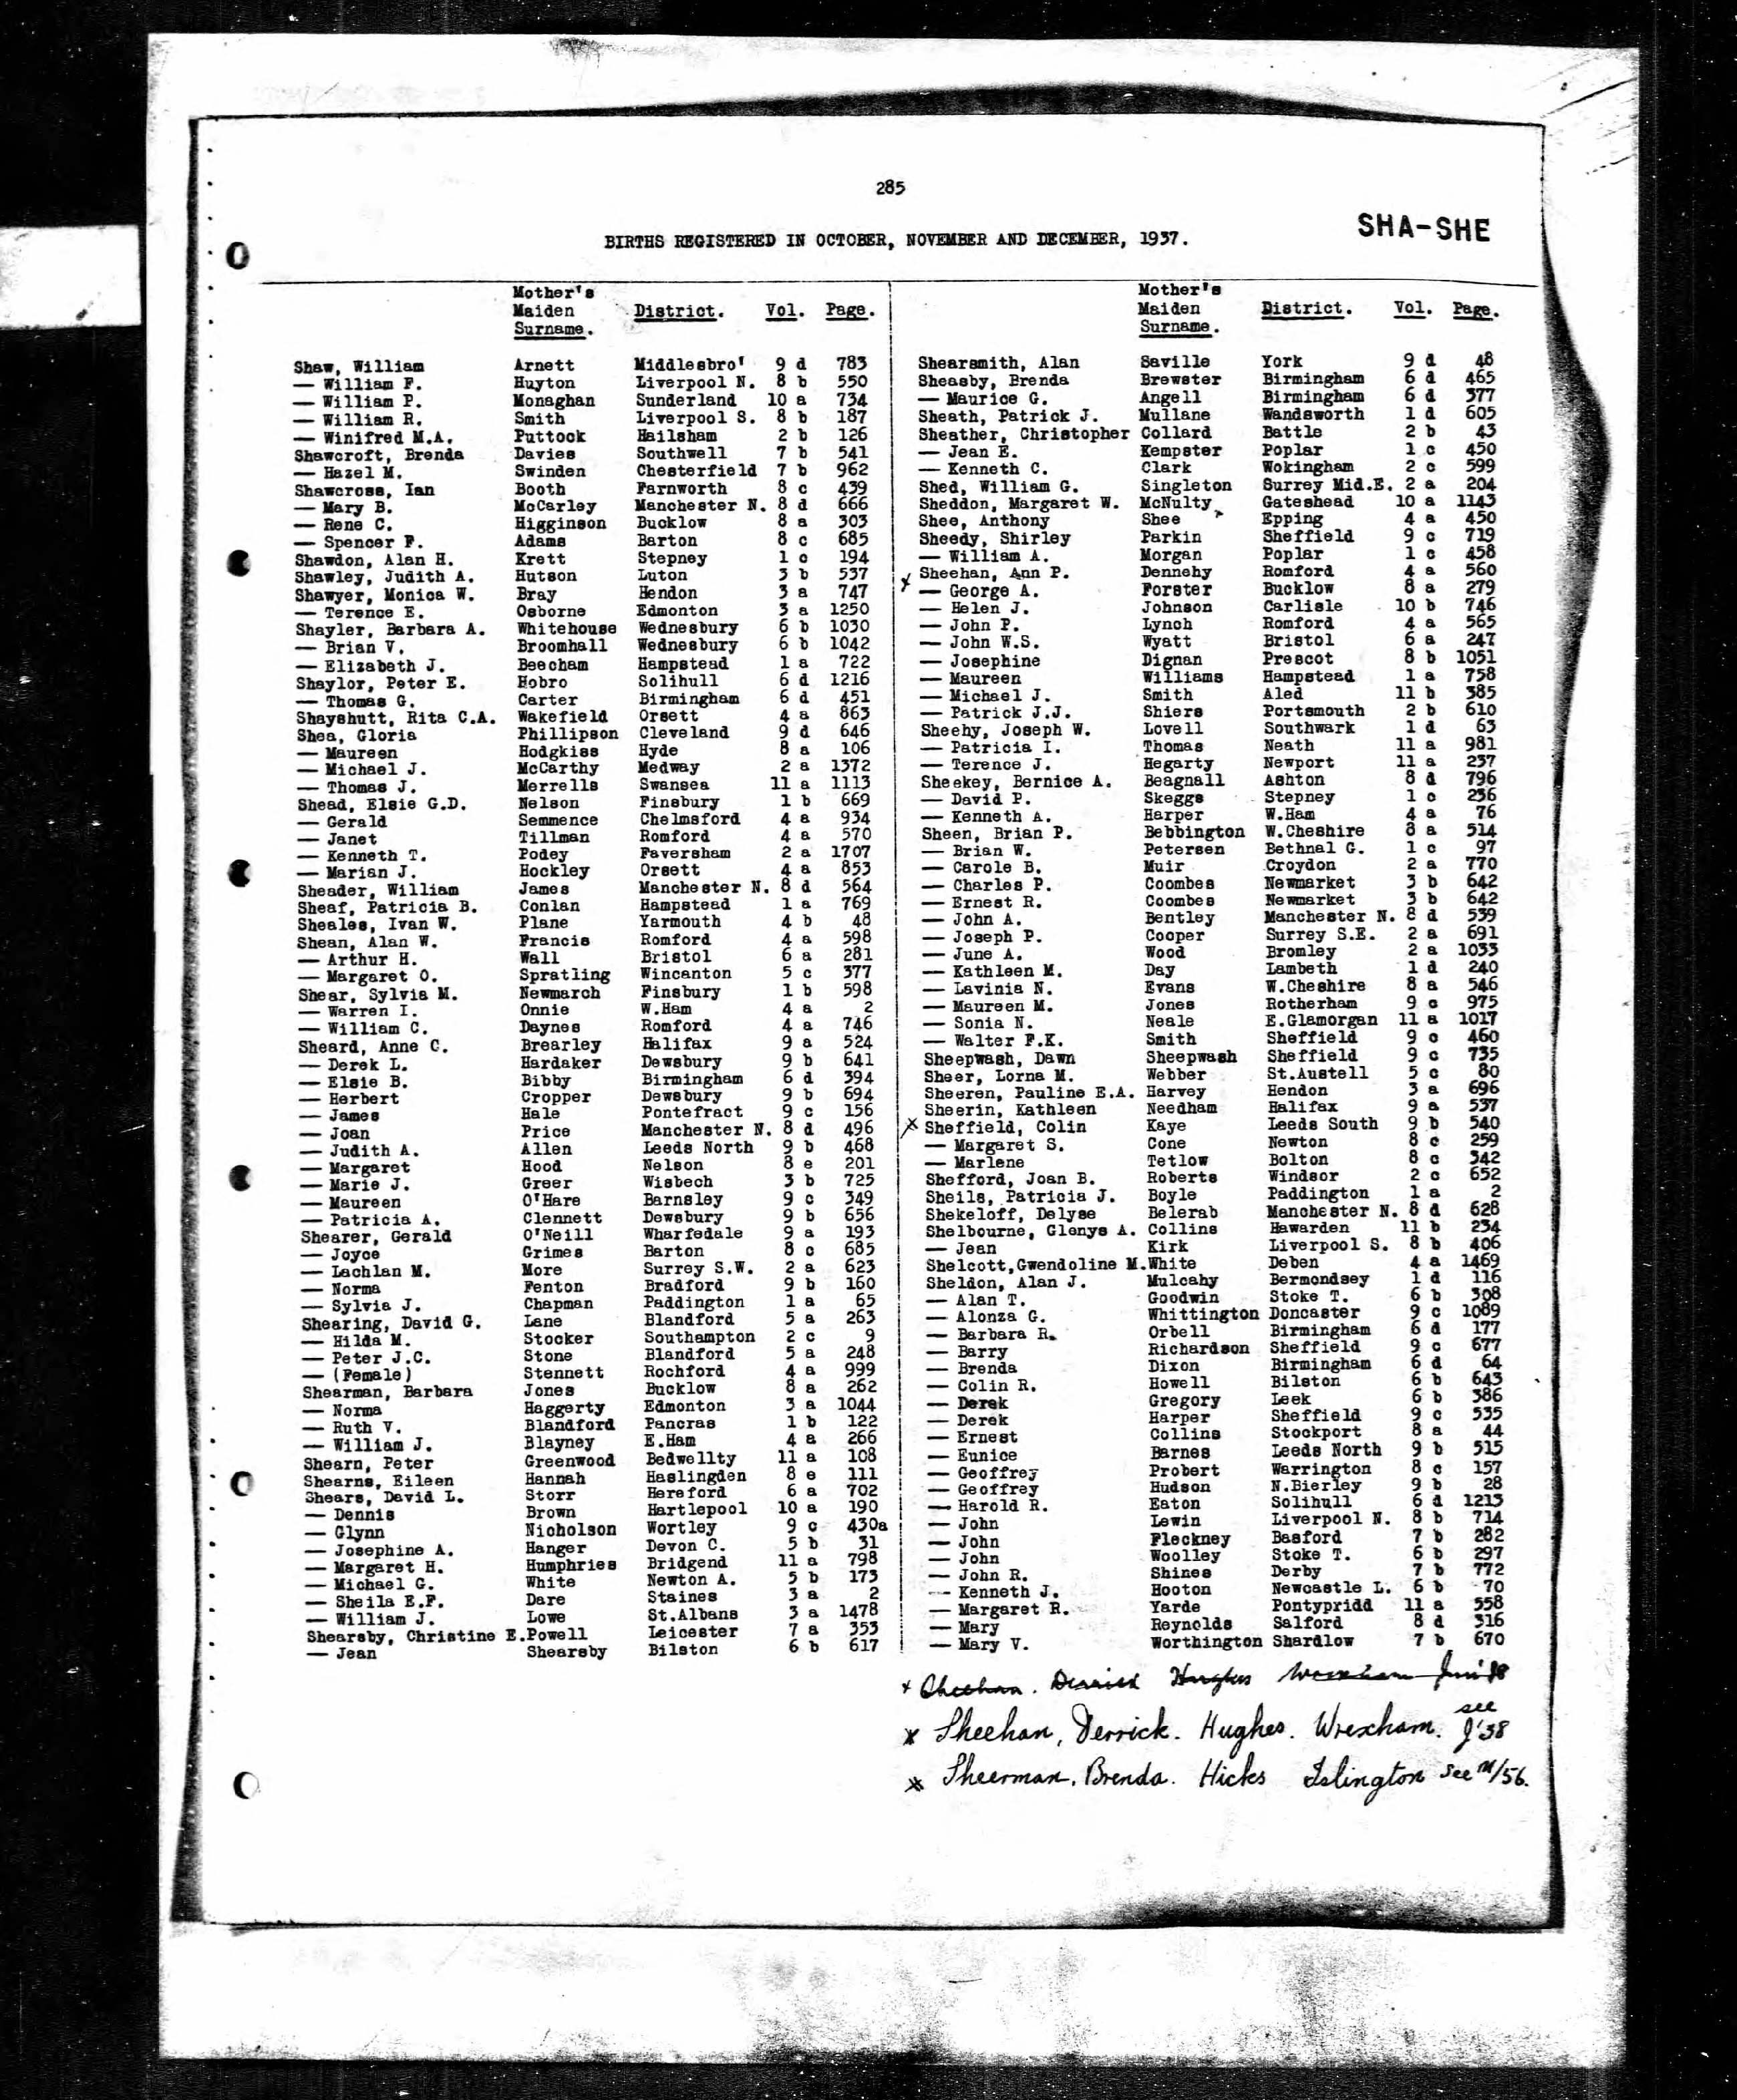 285
SHA-SHE
BIRTHS REGISTERED IN OCTOBER, NOVEMBER AND DECEMBER, 1937.
Mother's
Maiden District. Vol. Page.
Surname.
Shaw, William Arnett Middlesbro' 9 d 783
— William F. Huyton Liverpool N. 8 b 550
— William P. Monaghan Sunderland 10 a 734
— William R. Smith Liverpool S. 8 b 187
— Winifred M.A. Puttock Hailsham 2 b 126
Shawcroft, Brenda Davies Southwell 7 b 541
— Hazel M. Swinden Chesterfield 7 b 962
Shawcross, Ian Booth Farnworth 8 c 439
— Mary B. McCarley Manchester N. 8 d 666
— Rene C. Higginson Bucklow 8 a 303
— Spencer F. Adams Barton 8 c 685
Shawdon, Alan H. Krett Stepney 1 c 194
Shawley, Judith A. Hutson Luton 3 b 537
Shawyer, Monica W. Bray Hendon 3 a 747
— Terence E. Osborne Edmonton 3 a 1250
Shayler, Barbara A. Whitehouse Wednesbury 6 b 1030
— Brian V. Broomhall Wednesbury 6 b 1042
— Elizabeth J. Beecham Hampstead 1 a 722
Shaylor, Peter E. Hobro Solihull 6 d 1216
— Thomas G. Carter Birmingham 6 d 451
Shayshutt, Rita C.A. Wakefield Orsett 4 a 863
Shea, Gloria Phillipson Cleveland 9 d 646
— Maureen Hodgkiss Hyde 8 a 106
— Michael J. McCarthy Medway 2 a 1372
— Thomas J. Merrells Swansea 11 a 1113
Shead, Elsie G.D. Nelson Finsbury 1 b 669
— Gerald Semmence Chelmsford 4 a 934
— Janet Tillman Romford 4 a 570
— Kenneth T. Podey Faversham 2 a 1707
— Marian J. Hockley Orsett 4 a 853
Sheader, William James Manchester N. 8 d 564
Sheaf, Patricia B. Conlan Hampstead 1 a 769
Sheales, Ivan W. Plane Yarmouth 4 b 48
Shean, Alan W. Francis Romford 4 a 598
— Arthur H. Wall Bristol 6 a 281
— Margaret O. Spratling Wincanton 5 c 377
Shear, Sylvia M. Newmarch Finsbury 1 b 598
— Warren I. Onnie W.Ham 4 a 2
— William C. Daynes Romford 4 a 746
Sheard, Anne C. Brearley Halifax 9 a 524
— Derek L. Hardaker Dewsbury 9 b 641
— Elsie B. Bibby Birmingham 6 d 394
— Herbert Cropper Dewsbury 9 b 694
— James Hale Pontefract 9 c 156
— Joan Price Manchester N. 8 d 496
— Judith A. Allen Leeds North 9 b 468
— Margaret Hood Nelson 8 e 201
— Marie J. Greer Wisbech 3 b 725
— Maureen O'Hare Barnsley 9 c 349
— Patricia A. Clennett Dewsbury 9 b 656
Shearer, Gerald O'Neill Wharfedale 9 a 193
— Joyce Grimes Barton 8 c 685
— Lachlan M. More Surrey S.W. 2 a 623
— Norma Fenton Bradford 9 b 160
— Sylvia J. Chapman Paddington 1 a 65
Shearing, David G. Lane Blandford 5 a 263
— Hilda M. Stocker Southampton 2 c 9
— Peter J.C. Stone Blandford 5 a 248
— (Female) Stennett Rochford 4 a 999
Shearman, Barbara Jones Bucklow 8 a 262
— Norma Haggerty Edmonton 3 a 1044
— Ruth V. Blandford Pancras 1 b 122
— William J. Blayney E.Ham 4 a 266
Shearn, Peter Greenwood Bedwellty 11 a 108
Shearns, Eileen Hannah Haslingden 8 e 111
Shears, David L. Storr Hereford 6 a 702
— Dennis Brown Hartlepool 10 a 190
— Glynn Nicholson Wortley 9 c 430a
— Josephine A. Hanger Devon C. 5 b 31
— Margaret H. Humphries Bridgend 11 a 798
— Michael G. White Newton A. 5 b 173
— Sheila E.F. Dare Staines 3 a 2
— William J. Lowe St.Albans 3 a 1478
Shearsby, Christine E. Powell Leicester 7 a 353
— Jean Shearsby Bilston 6 b 617
Mother's
Maiden District. Vol. Page.
Surname.
Shearsmith, Alan Saville York 9 d 48
Sheasby, Brenda Brewster Birmingham 6 d 465
— Maurice G. Angell Birmingham 6 d 377
Sheath, Patrick J. Mullane Wandsworth 1 d 605
Sheather, Christopher Collard Battle 2 b 43
— Jean E. Kempster Poplar 1 c 450
— Kenneth C. Clark Wokingham 2 c 599
Shed, William G. Singleton Surrey Mid.E. 2 a 204
Sheddon, Margaret W. McNulty Gateshead 10 a 1143
Shee, Anthony Shee Epping 4 a 450
Sheedy, Shirley Parkin Sheffield 9 c 719
— William A. Morgan Poplar 1 c 458
Sheehan, Ann P. Dennehy Romford 4 a 560
— George A. Forster Bucklow 8 a 279
— Helen J. Johnson Carlisle 10 b 746
— John P. Lynch Romford 4 a 565
— John W.S. Wyatt Bristol 6 a 247
— Josephine Dignan Prescot 8 b 1051
— Maureen Williams Hampstead 1 a 758
— Michael J. Smith Aled 11 b 385
— Patrick J.J. Shiers Portsmouth 2 b 610
Sheehy, Joseph W. Lovell Southwark 1 d 63
— Patricia I. Thomas Neath 11 a 981
— Terence J. Hegarty Newport 11 a 237
Sheekey, Bernice A. Beagnall Ashton 8 d 796
— David P. Skeggs Stepney 1 c 236
— Kenneth A. Harper W.Ham 4 a 76
Sheen, Brian P. Bebbington W.Cheshire 8 a 514
— Brian W. Petersen Bethnal G. 1 c 97
— Carole B. Muir Croydon 2 a 770
— Charles P. Coombes Newmarket 3 b 642
— Ernest R. Coombes Newmarket 3 b 642
— John A. Bentley Manchester N. 8 d 539
— Joseph P. Cooper Surrey S.E. 2 a 691
— June A. Wood Bromley 2 a 1033
— Kathleen M. Day Lambeth 1 d 240
— Lavinia N. Evans W.Cheshire 8 a 546
— Maureen M. Jones Rotherham 9 c 975
— Sonia N. Neale E.Glamorgan 11 a 1017
— Walter F.K. Smith Sheffield 9 c 460
Sheepwash, Dawn Sheepwash Sheffield 9 c 735
Sheer, Lorna M. Webber St.Austell 5 c 80
Sheeren, Pauline E.A. Harvey Hendon 3 a 696
Sheerin, Kathleen Needham Halifax 9 a 537
Sheffield, Colin Kaye Leeds South 9 b 540
— Margaret S. Cone Newton 8 c 259
— Marlene Tetlow Bolton 8 c 342
Shefford, Joan B. Roberts Windsor 2 c 652
Sheils, Patricia J. Boyle Paddington 1 a 2
Shekeloff, Delyse Belerab Manchester N. 8 d 628
Shelbourne, Glenys A. Collins Hawarden 11 b 234
— Jean Kirk Liverpool S. 8 b 406
Shelcott,Gwendoline M. White Deben 4 a 1469
Sheldon, Alan J. Mulcahy Bermondsey 1 d 116
— Alan T. Goodwin Stoke T. 6 b 308
— Alonza G. Whittington Doncaster 9 c 1089
— Barbara R. Orbell Birmingham 6 d 177
— Barry Richardson Sheffield 9 c 677
— Brenda Dixon Birmingham 6 d 64
— Colin R. Howell Bilston 6 b 643
— Derek Gregory Leek 6 b 386
— Derek Harper Sheffield 9 c 535
— Ernest Collins Stockport 8 a 44
— Eunice Barnes Leeds North 9 b 515
— Geoffrey Probert Warrington 8 c 157
— Geoffrey Hudson N.Bierley 9 b 28
— Harold R. Eaton Solihull 6 d 1213
— John Lewin Liverpool N. 8 b 714
— John Fleckney Basford 7 b 282
— John Woolley Stoke T. 6 b 297
— John R. Shines Derby 7 b 772
— Kenneth J. Hooton Newcastle L. 6 b 70
— Margaret R. Yarde Pontypridd 11 a 558
— Mary Reynolds Salford 8 d 316
— Mary V. Worthington Shardlow 7 b 670
Sheehan. Derrick Hughes Wrexham
Sheehan, Derrick. Hughes. Wrexham. see J'38
Sheerman, Brenda. Hicks Islington See M/56.